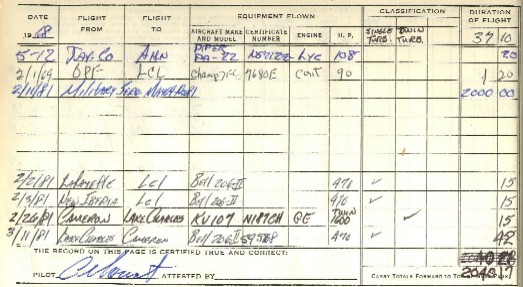 DATE FLIGHT FROM FLIGHT TO EQUIPMENT FLOWN CLASSIFICATION DURATION OF FLIGHT
1968 AIRCRAFT MAKE AND MODEL CERTIFICATE NUMBER ENGINE H. P. SINGLE TURB. TWIN TURB. 37 10
5-12 PIPER PA-22 LYC 108 20
2/1/69 OPF LCL Champ 7EC 7680E Cont 90 1 20
2/11/81 Military 2000 00
2/2/81 Lafayette LCL Bell 206-II 470 ✓ 15
2/3/81 New Iberia LCL Bell 206-II 470 ✓ 15
2/26/81 Cameron Lake Charles KV107 N187CH GE TWIN 1600 ✓ 15
3/11/81 Lake Charles Cameron Bell 206-II 470 ✓ 42
THE RECORD ON THIS PAGE IS CERTIFIED TRUE AND CORRECT:
PILOT ATTESTED BY CARRY TOTALS FORWARD TO TOP OF
2040 17